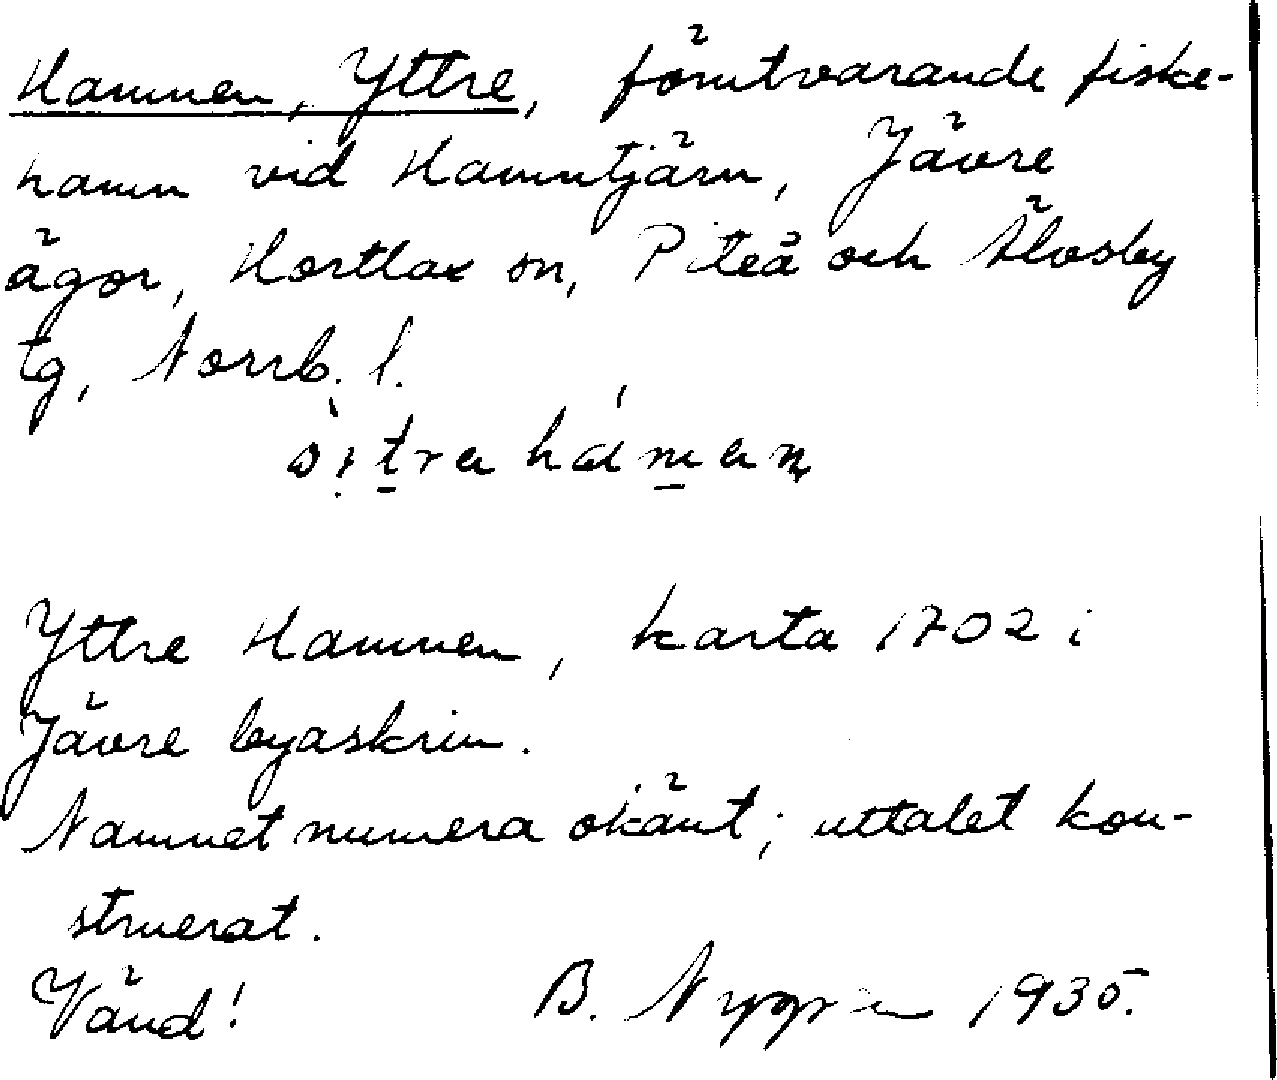 Hamnen, Yttre, förutvarande fiske-
hamn vid Hamntjärn, Jävre
ägor, Hortlax sn, Piteå och Älvsby
tg, Norrb. l.
Yttre Hamnen, karta 1702 i
Jävre byaskrin.
Namnet numera okänt; uttalet kon-
struerat.
Vänd! B. Nygren 1935.